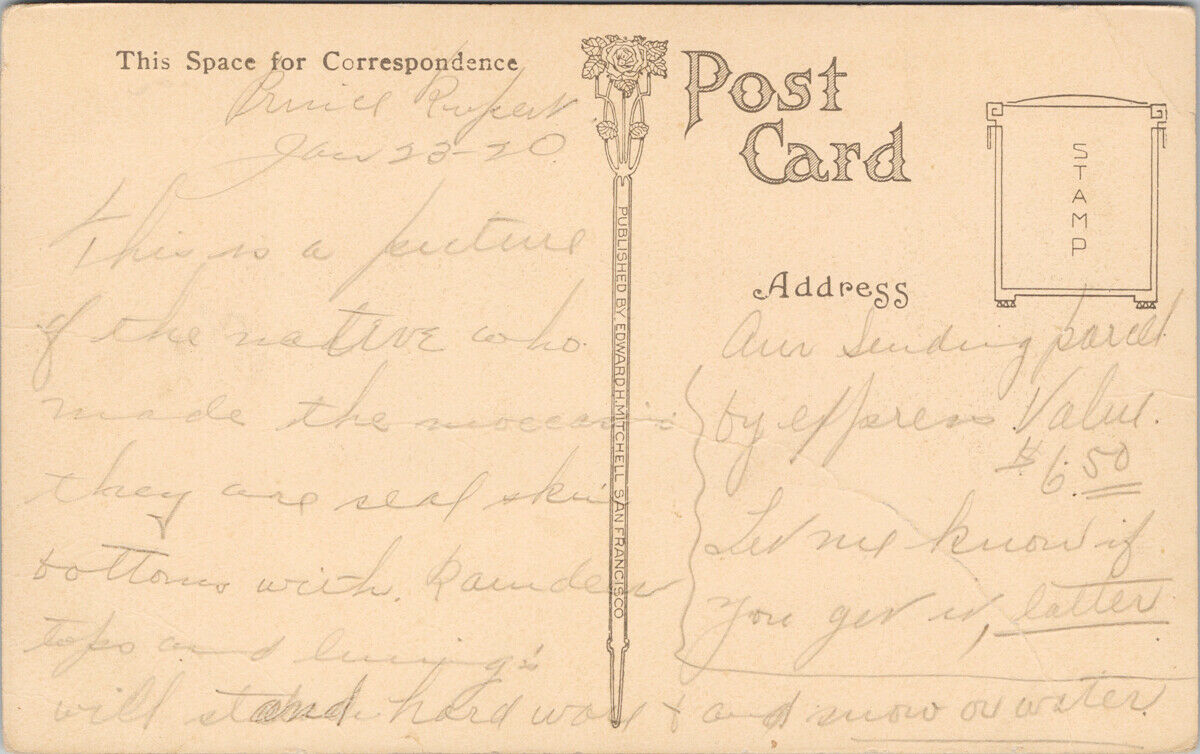 This Space for Correspondence
Post
Card
STAMP
Address
PUBLISHED BY EDWARD H. MITCHELL SAN FRANCISCO
Prince Rupert
Jan 23-20
This is a picture
of the native who
made the moccasins
they are seal skin
bottoms with
tops and linings
will stand hard wor & and snow or water
Am sending parcel
by express Value.
$6.50
Let me know if
you get it, latter